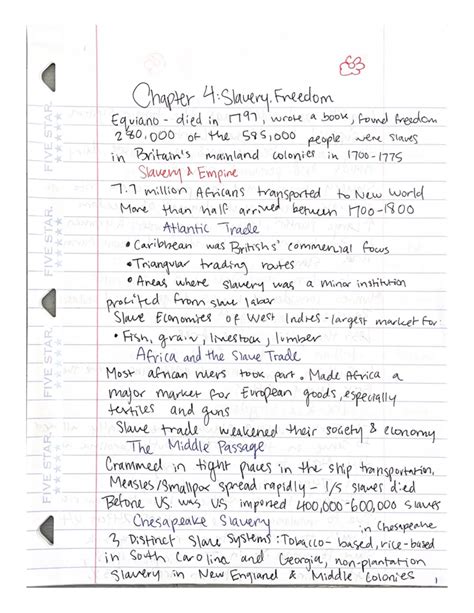 Chapter 4: Slavery, Freedom
Equiano - died in 1797, wrote a book, found freedom
280,000 of the 585,000 people were slaves
in Britain's mainland colonies in 1700-1775
Slavery & Empire
7.7 million Africans transported to New World
More than half arrived between 1700-1800
Atlantic Trade
• Caribbean was British's' commercial focus
• Triangular trading routes
• Areas where slavery was a minor institution
profited from slave labor
Slave Economies of West Indies - largest market for:
• Fish, grain, livestock, lumber
Africa and the Slave Trade
Most african rulers took part. Made Africa a
major market for European goods, especially
textiles and guns
Slave trade weakened their society & economy
The Middle Passage
Crammed in tight places in the ship transportation,
Measles/Smallpox spread rapidly - 1/5 slaves died
Before US. was US imported 400,000-600,000 slaves
Chesapeake Slavery
in Chesapeake
3 Distinct Slave Systems: Tobacco-based, rice-based
in South Carolina and Georgia, non-plantation
Slavery in New England & Middle Colonies
1
FIVE STAR
FIVE STAR
FIVE STAR
FIVE STAR